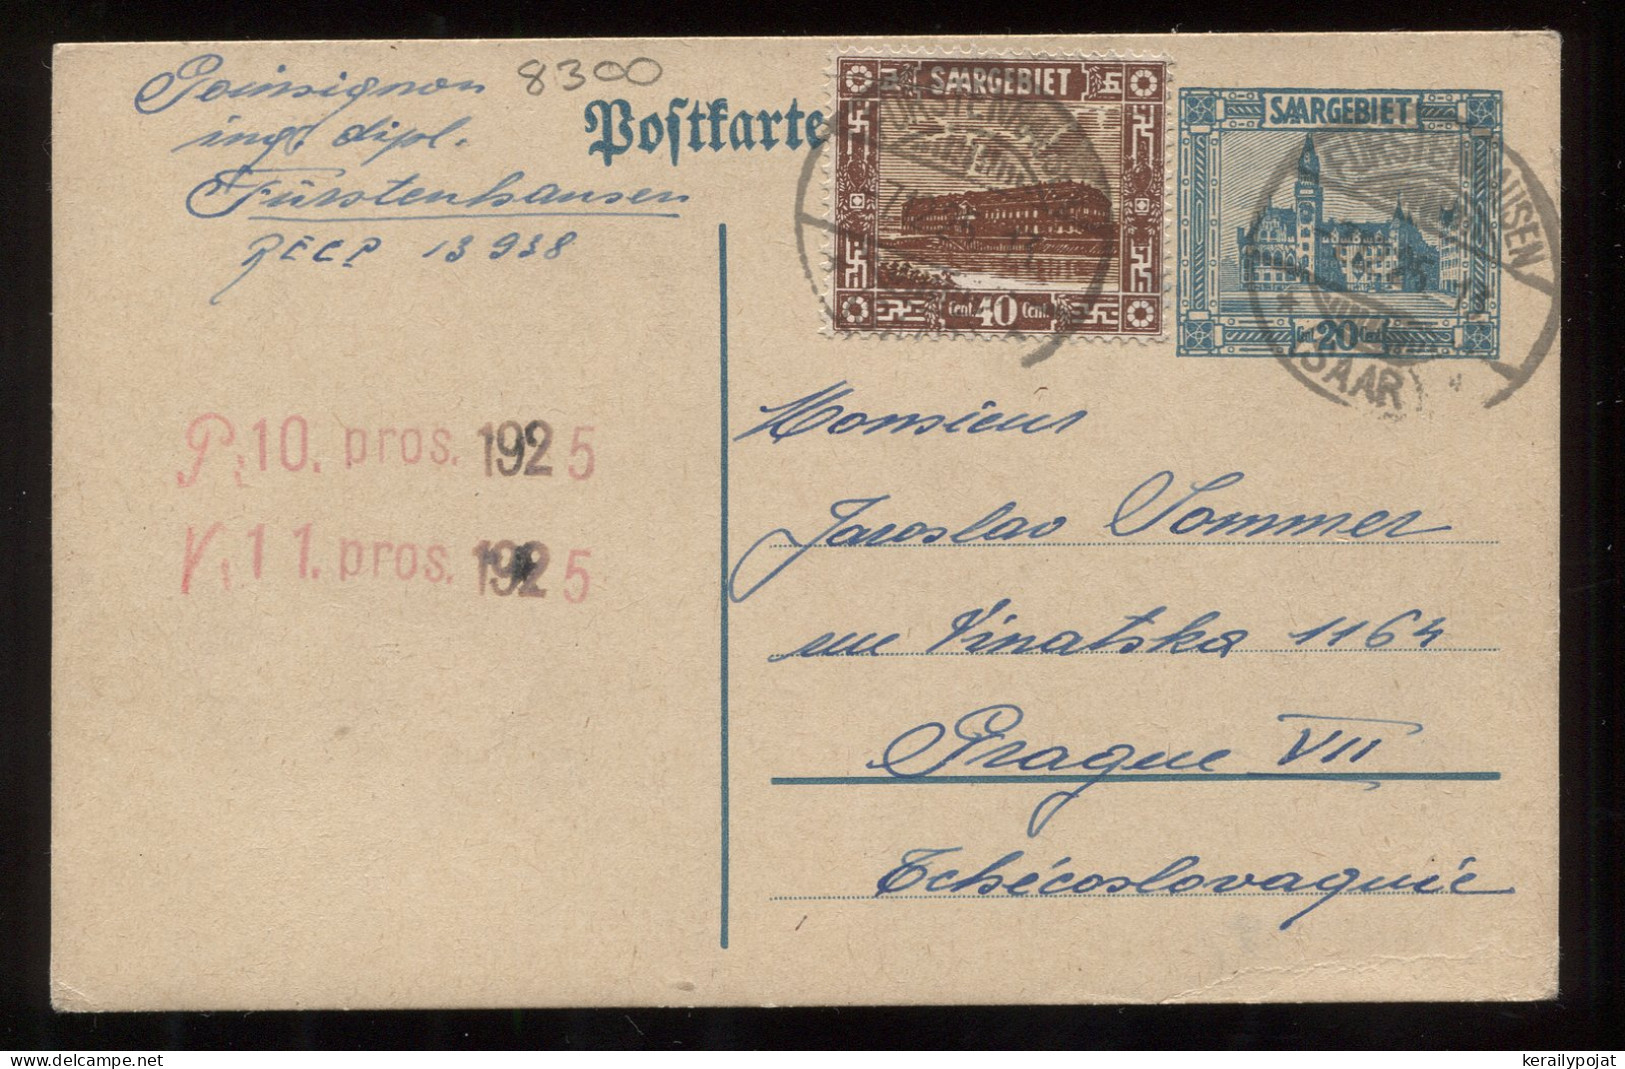 Poinsignon 8300
ing. dipl.
Fürstenhausen
RECP 13938
Postkarte
SAARGEBIET
Cent. 40 Cent.
SAARGEBIET
Cent. 20 Cent.
FÜRSTENHAUSEN
(SAAR)
P. 10. pros. 1925
V. 11. pros. 1925
Monsieur
Jaroslav Sommer
rue Vinatska 1164
Prague VII
Tchécoslovaquie
kerailypojat